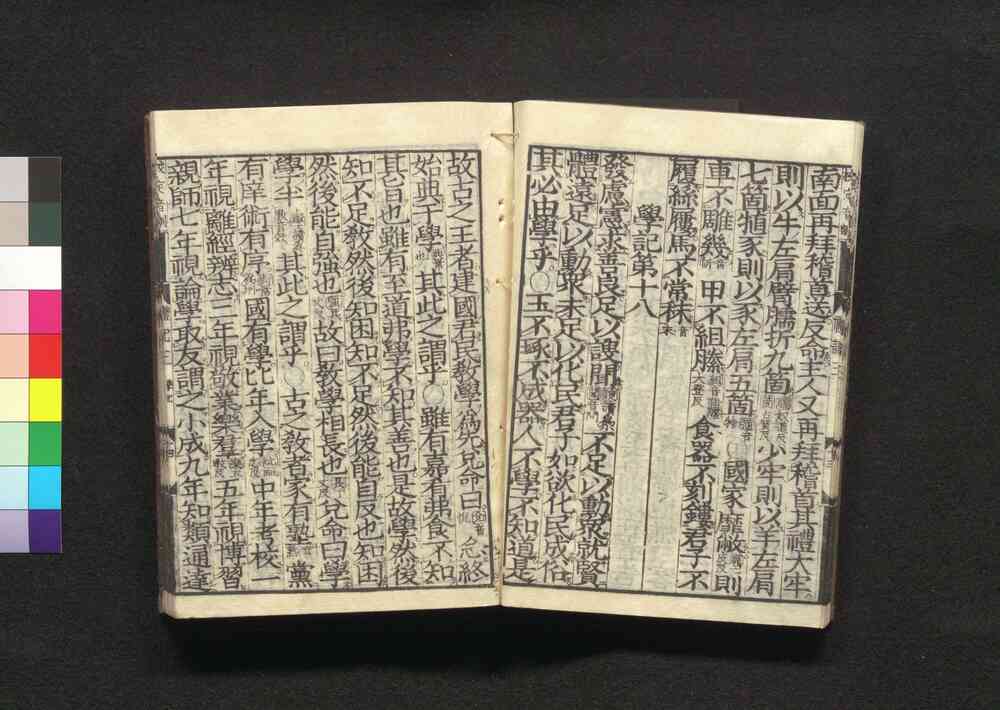 南面再拜稽首送反命主人又再拜稽首其禮大牢
則以牛左肩臂臑折九箇少牢則以羊左肩
七箇犆豕則以豕左肩五箇〇國家靡敝則
車不雕幾甲不組縢食器不刻鏤君子不
履絲屨馬不常秣
學記第十八
發慮憲求善良足以謏聞不足以動衆就賢
體遠足以動衆未足以化民君子如欲化民成俗
其必由學乎〇玉不琢不成器人不學不知道是
故古之王者建國君民敎學爲先兌命曰念終
始典于學其此之謂乎〇雖有嘉肴弗食不知
其旨也雖有至道弗學不知其善也是故學然後
知不足敎然後知困知不足然後能自反也知困
然後能自强也故曰敎學相長也兌命曰學
學半其此之謂乎〇古之敎者家有塾黨
有庠術有序國有學比年入學中年考校一
年視離經辨志三年視敬業樂羣五年視博習
親師七年視論學取友謂之小成九年知類通達